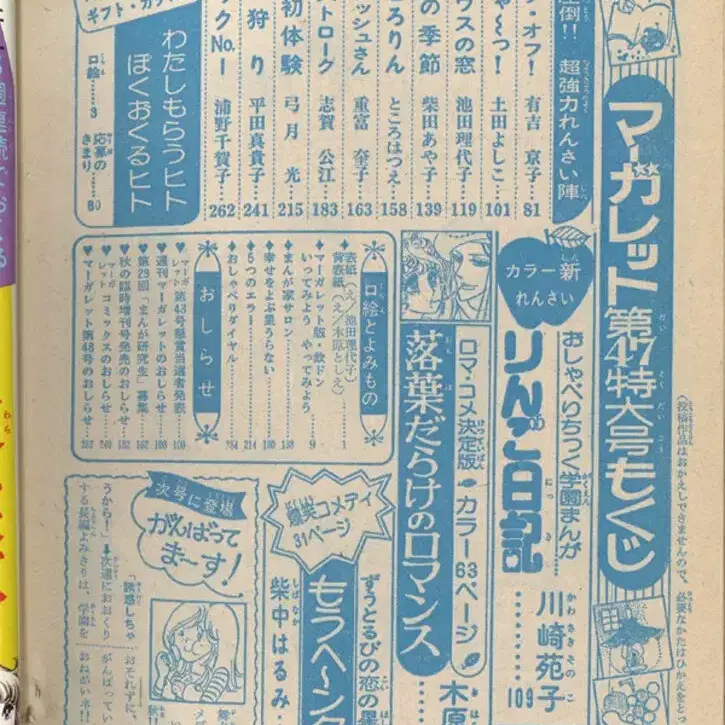 (投稿作品はおかえしできませんので、必要なかたはひかえをと
マーガレット第47特大号もくじ
圧倒!! 超強力れんさい陣
・オフ! 有吉 京子…81
ゃ〜っ! 土田よしこ…101
ウスの窓 池田理代子…119
の季節 柴田あや子…139
ころりん ところはつえ…158
ッシュさん 重富 奎子…163
ストローク 志賀 公江…183
初体験 弓月 光…215
狩り 平田真貴子…241
ックNo.1 浦野千賀子…262
ギフト・カ
わたしもらうヒト
ぼくおくるヒト
口絵……3
応募のきまり……80
カラー新れんさい
おしゃべりちっく学園まんが
りんご日記
川崎苑子
109
ロマ・コメ決定版 カラー63ページ
落葉だらけのロマンス
木原
口絵とよみもの
表紙(え/池田理代子)……1
背表紙(え/木原としえ)
マーガレット版・欽ドン
いってみよう やってみよう……9
まんが家サロン……138
幸せをよぶ星うらない……180
5つのエラー……214
おしゃべりダイヤル……264
おしらせ
マーガレット第43号懸賞当選者発表……100
週刊マーガレットのおしらせ……108
第29回「まんが研究生」募集……162
秋の臨時増刊号発売のおしらせ……182
マーガレットコミックスのおしらせ……240
マーガレット第48号のおしらせ……263
爆笑コメディ
31ページ
ずうとるびの恋の星
もうへ〜ん
柴中はるみ
次号に登場
がんばってまーす!
「誘惑しちゃ
うから!」➔次週におおくり
する長編よみきりは、学園を
おそれずに、
がんばってい
おねがいネ!!